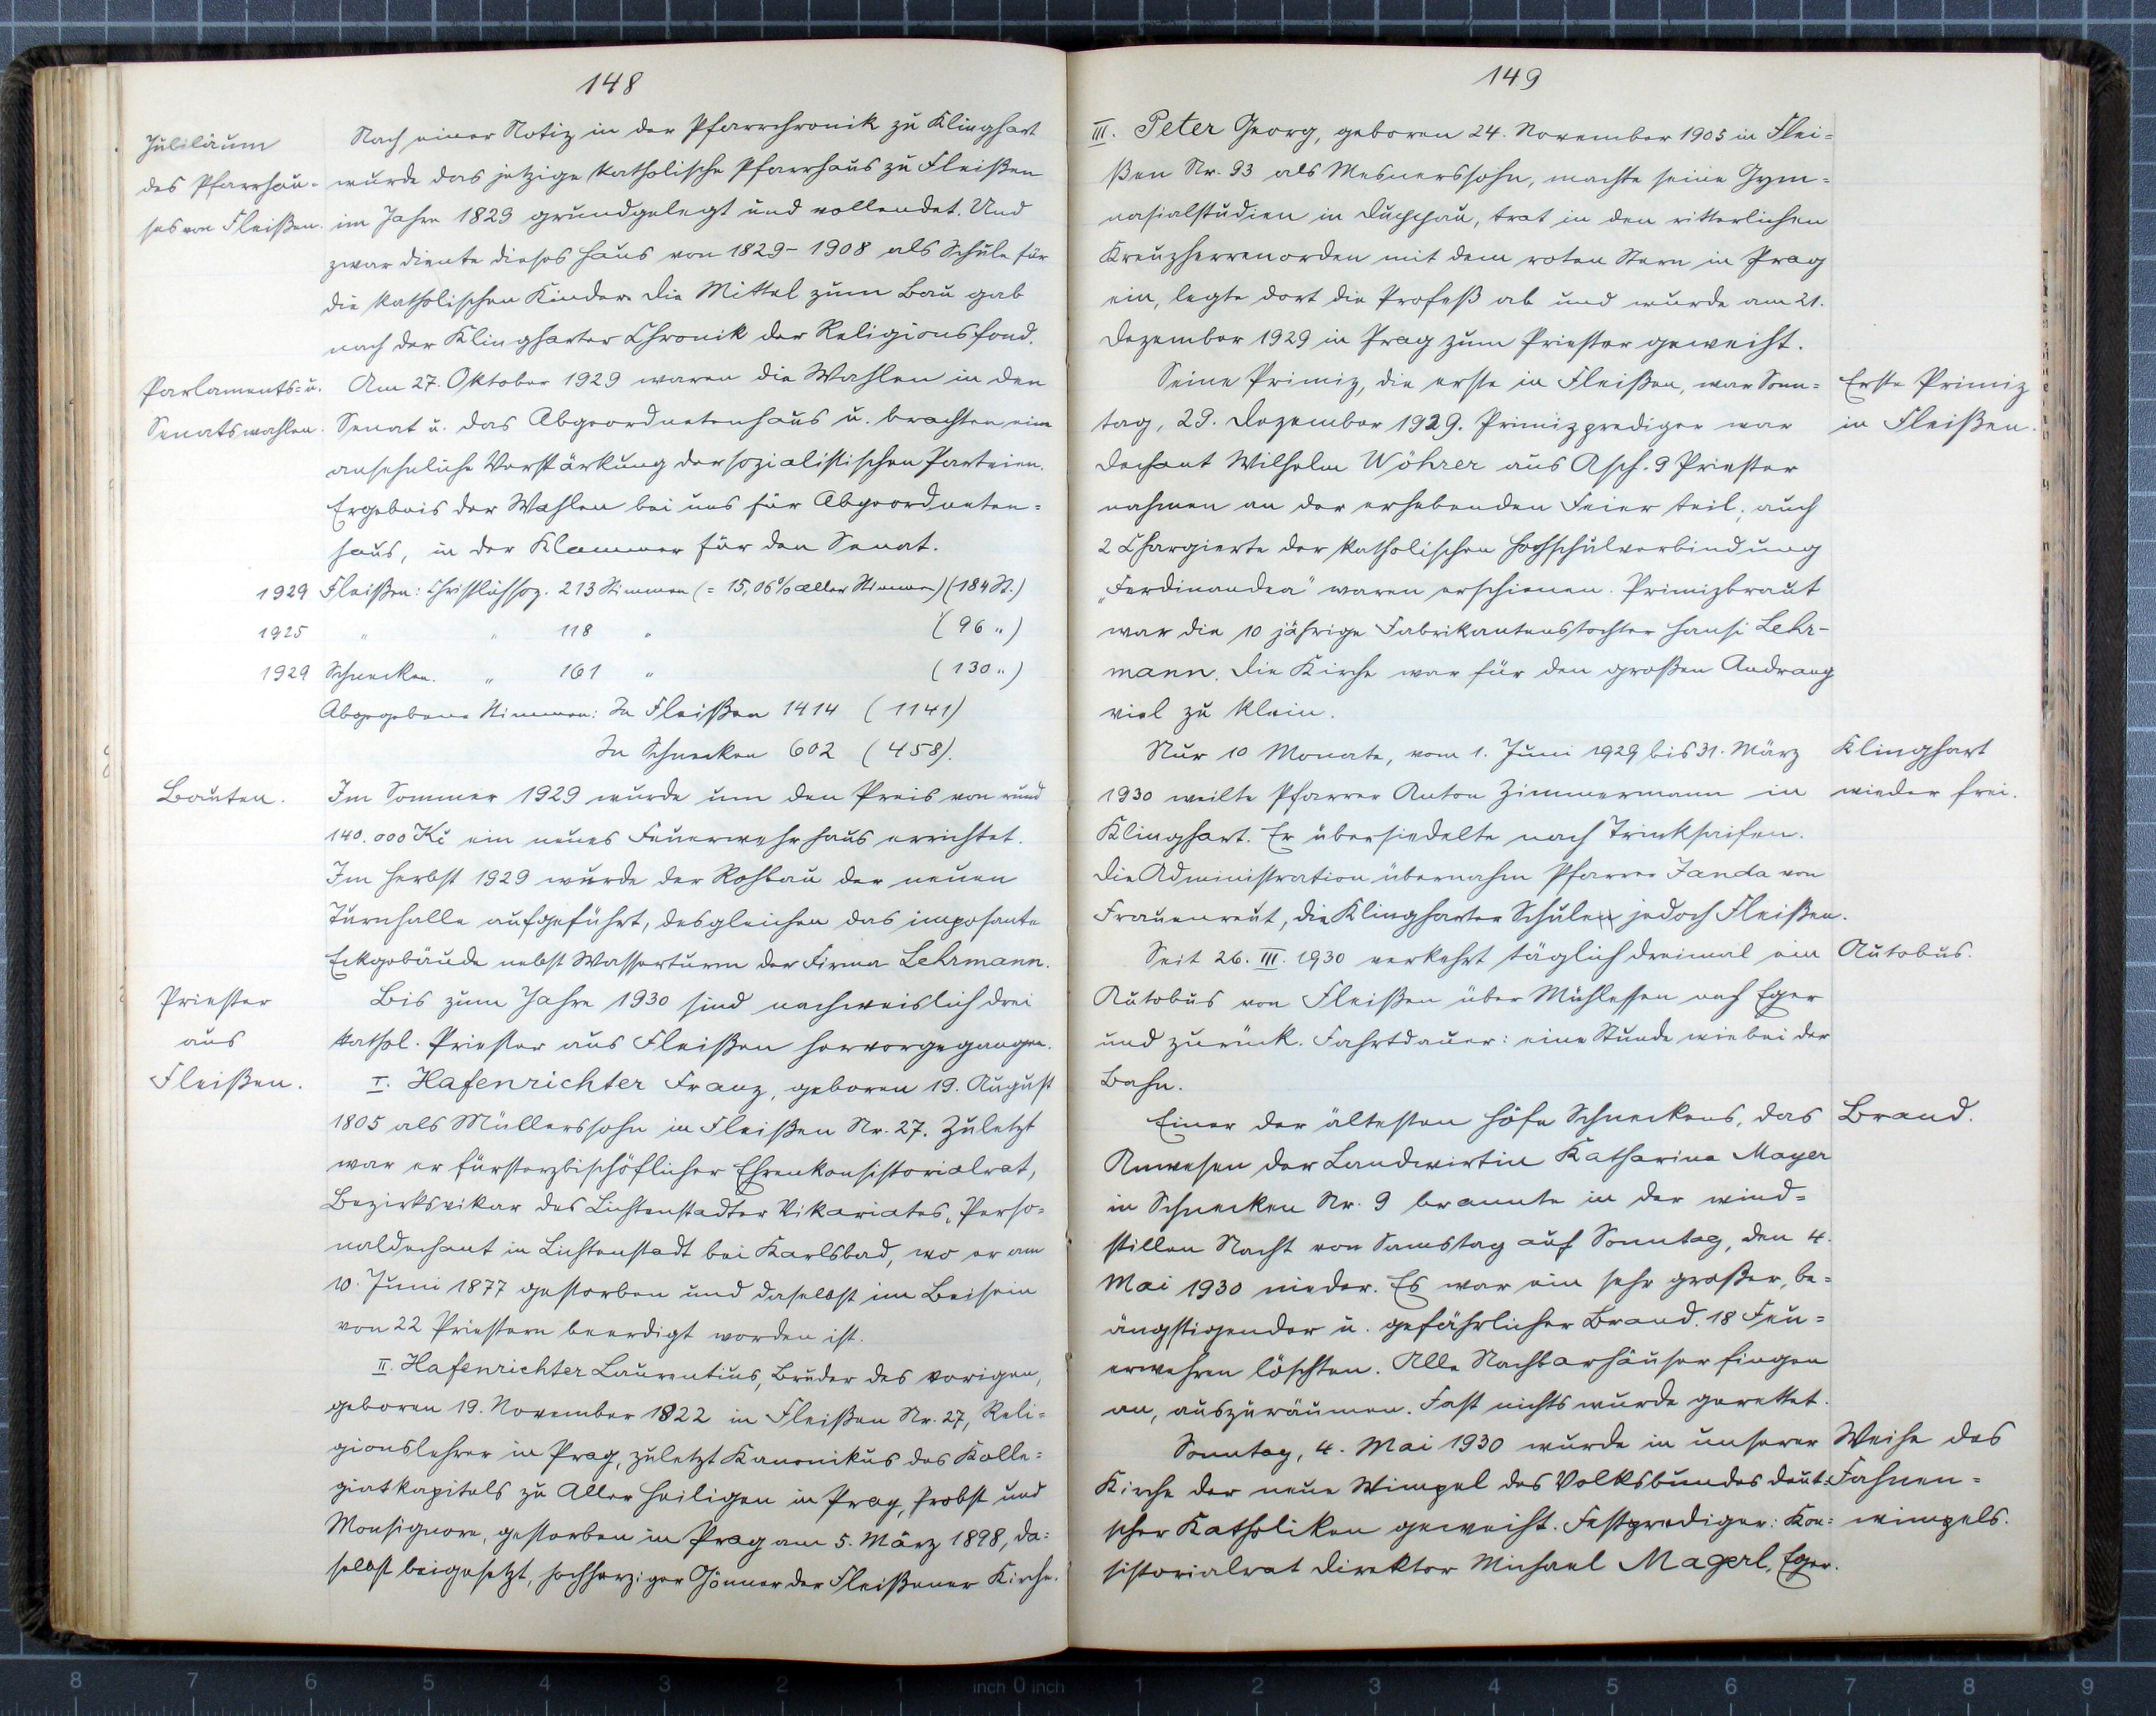 148
Jubiläum
des Pfarrhau-
ses von Fleißen.
Nach einer Notiz in der Pfarrchronik zu Klinghart
wurde das jetzige katholische Pfarrhaus zu Fleißen
im Jahre 1829 grundgelegt und vollendet. Und
zwar diente dieses Haus von 1829-1908 als Schule für
die katholischen Kinder. Die Mittel zum Bau gab
nach der Klingharter Chronik der Religionsfond.
Parlaments- u.
Senatswahlen.
Am 27. Oktober 1929 waren die Wahlen in den
Senat u. das Abgeordnetenhaus u. brachten eine
ansehnliche Verstärkung der sozialistischen Parteien.
Ergebnis der Wahlen bei uns für Abgeordneten=
haus, in der Klammer für den Senat.
1929 Fleißen: Christlichsoz. 213 Stimmen (= 15,06% aller Stimmen) (184 St.)
1925 " " 118 " (96 ")
1929 Schnecken. " 161 " (130 ")
Abgegebene Stimmen: In Fleißen 1414 (1141)
In Schnecken 602 (458).
Bauten.
Im Sommer 1929 wurde um den Preis von rund
140.000 Kč ein neues Feuerwehrhaus errichtet.
Im Herbst 1929 wurde der Rohbau der neuen
Turnhalle aufgeführt, desgleichen das imposante
Eckgebäude nebst Wasserturm der Firma Lehrmann.
Priester
aus
Fleißen.
Bis zum Jahre 1930 sind nachweislich drei
kathol. Priester aus Fleißen hervorgegangen.
I. Hafenrichter Franz, geboren 19. August
1805 als Müllerssohn in Fleißen Nr. 27. Zuletzt
war er fürsterzbischöflicher Ehrenkonsistorialrat,
Bezirksvikar des Lichtenstadter Vikariates, Perso=
naldechant in Lichtenstadt bei Karlsbad, wo er am
10. Juni 1877 gestorben und daselbst im Beisein
von 22 Priestern beerdigt worden ist.
II. Hafenrichter Laurentius, Bruder des vorigen,
geboren 19. November 1822 in Fleißen Nr. 27, Reli=
gionslehrer in Prag, zuletzt Kanonikus des Kolle=
giatkapitels zu Aller Heiligen in Prag, Probst und
Monsignore, gestorben in Prag am 5. März 1898, da=
selbst beigesetzt, hochherziger Gönner der Fleißener Kirche.
149
III. Peter Georg, geboren 24. November 1905 in Flei=
ßen Nr. 93 als Mesnerssohn, machte seine Gym=
nasialstudien in Duppau, trat in den ritterlichen
Kreuzherrenorden mit dem roten Stern in Prag
ein, legte dort die Profeß ab und wurde am 21.
Dezember 1929 in Prag zum Priester geweiht.
Seine Primiz, die erste in Fleißen, war Sonn=
tag, 29. Dezember 1929. Primizprediger war
Dechant Wilhelm Wöhrer aus Asch. 9 Priester
nahmen an der erhebenden Feier teil; auch
2 Chargierte der katholischen Hochschulverbindung
„Ferdinandea" waren erschienen. Primizbraut
war die 10 jährige Fabrikantenstochter Hansi Lehr-
mann. Die Kirche war für den großen Andrang
viel zu klein.
Erste Primiz
in Fleißen.
Nur 10 Monate, vom 1. Juni 1929 bis 31. März
1930 weilte Pfarrer Anton Zimmermann in
Klinghart. Er übersiedelte nach Trinksaifen.
Die Administration übernahm Pfarrer Janda von
Frauenreut, die Klingharter Schule jedoch Fleißen.
Klinghart
wieder frei.
Seit 26. III. 1930 verkehrt täglich dreimal ein
Autobus von Fleißen über Mühlessen nach Eger
und zurück. Fahrtdauer: eine Stunde wie bei der
Bahn.
Autobus.
Einer der ältesten Höfe Schneckens, das
Anwesen der Landwirtin Katharina Mayer
in Schnecken Nr. 9 brannte in der wind=
stillen Nacht von Samstag auf Sonntag, den 4.
Mai 1930 nieder. Es war ein sehr großer, be=
ängstigender u. gefährlicher Brand. 18 Feu=
erwehren löschten. Alle Nachbarhäuser fingen
an, auszuräumen. Fast nichts wurde gerettet.
Brand.
Sonntag, 4. Mai 1930 wurde in unserer
Kirche der neue Wimpel des Volksbundes deut=
scher Katholiken geweiht. Festprediger: Kon=
sistorialrat Direktor Michael Magerl, Eger.
Weihe des
Fahnen=
wimpels.
8 7 6 5 4 3 2 1 inch 0 inch 1 2 3 4 5 6 7 8 9